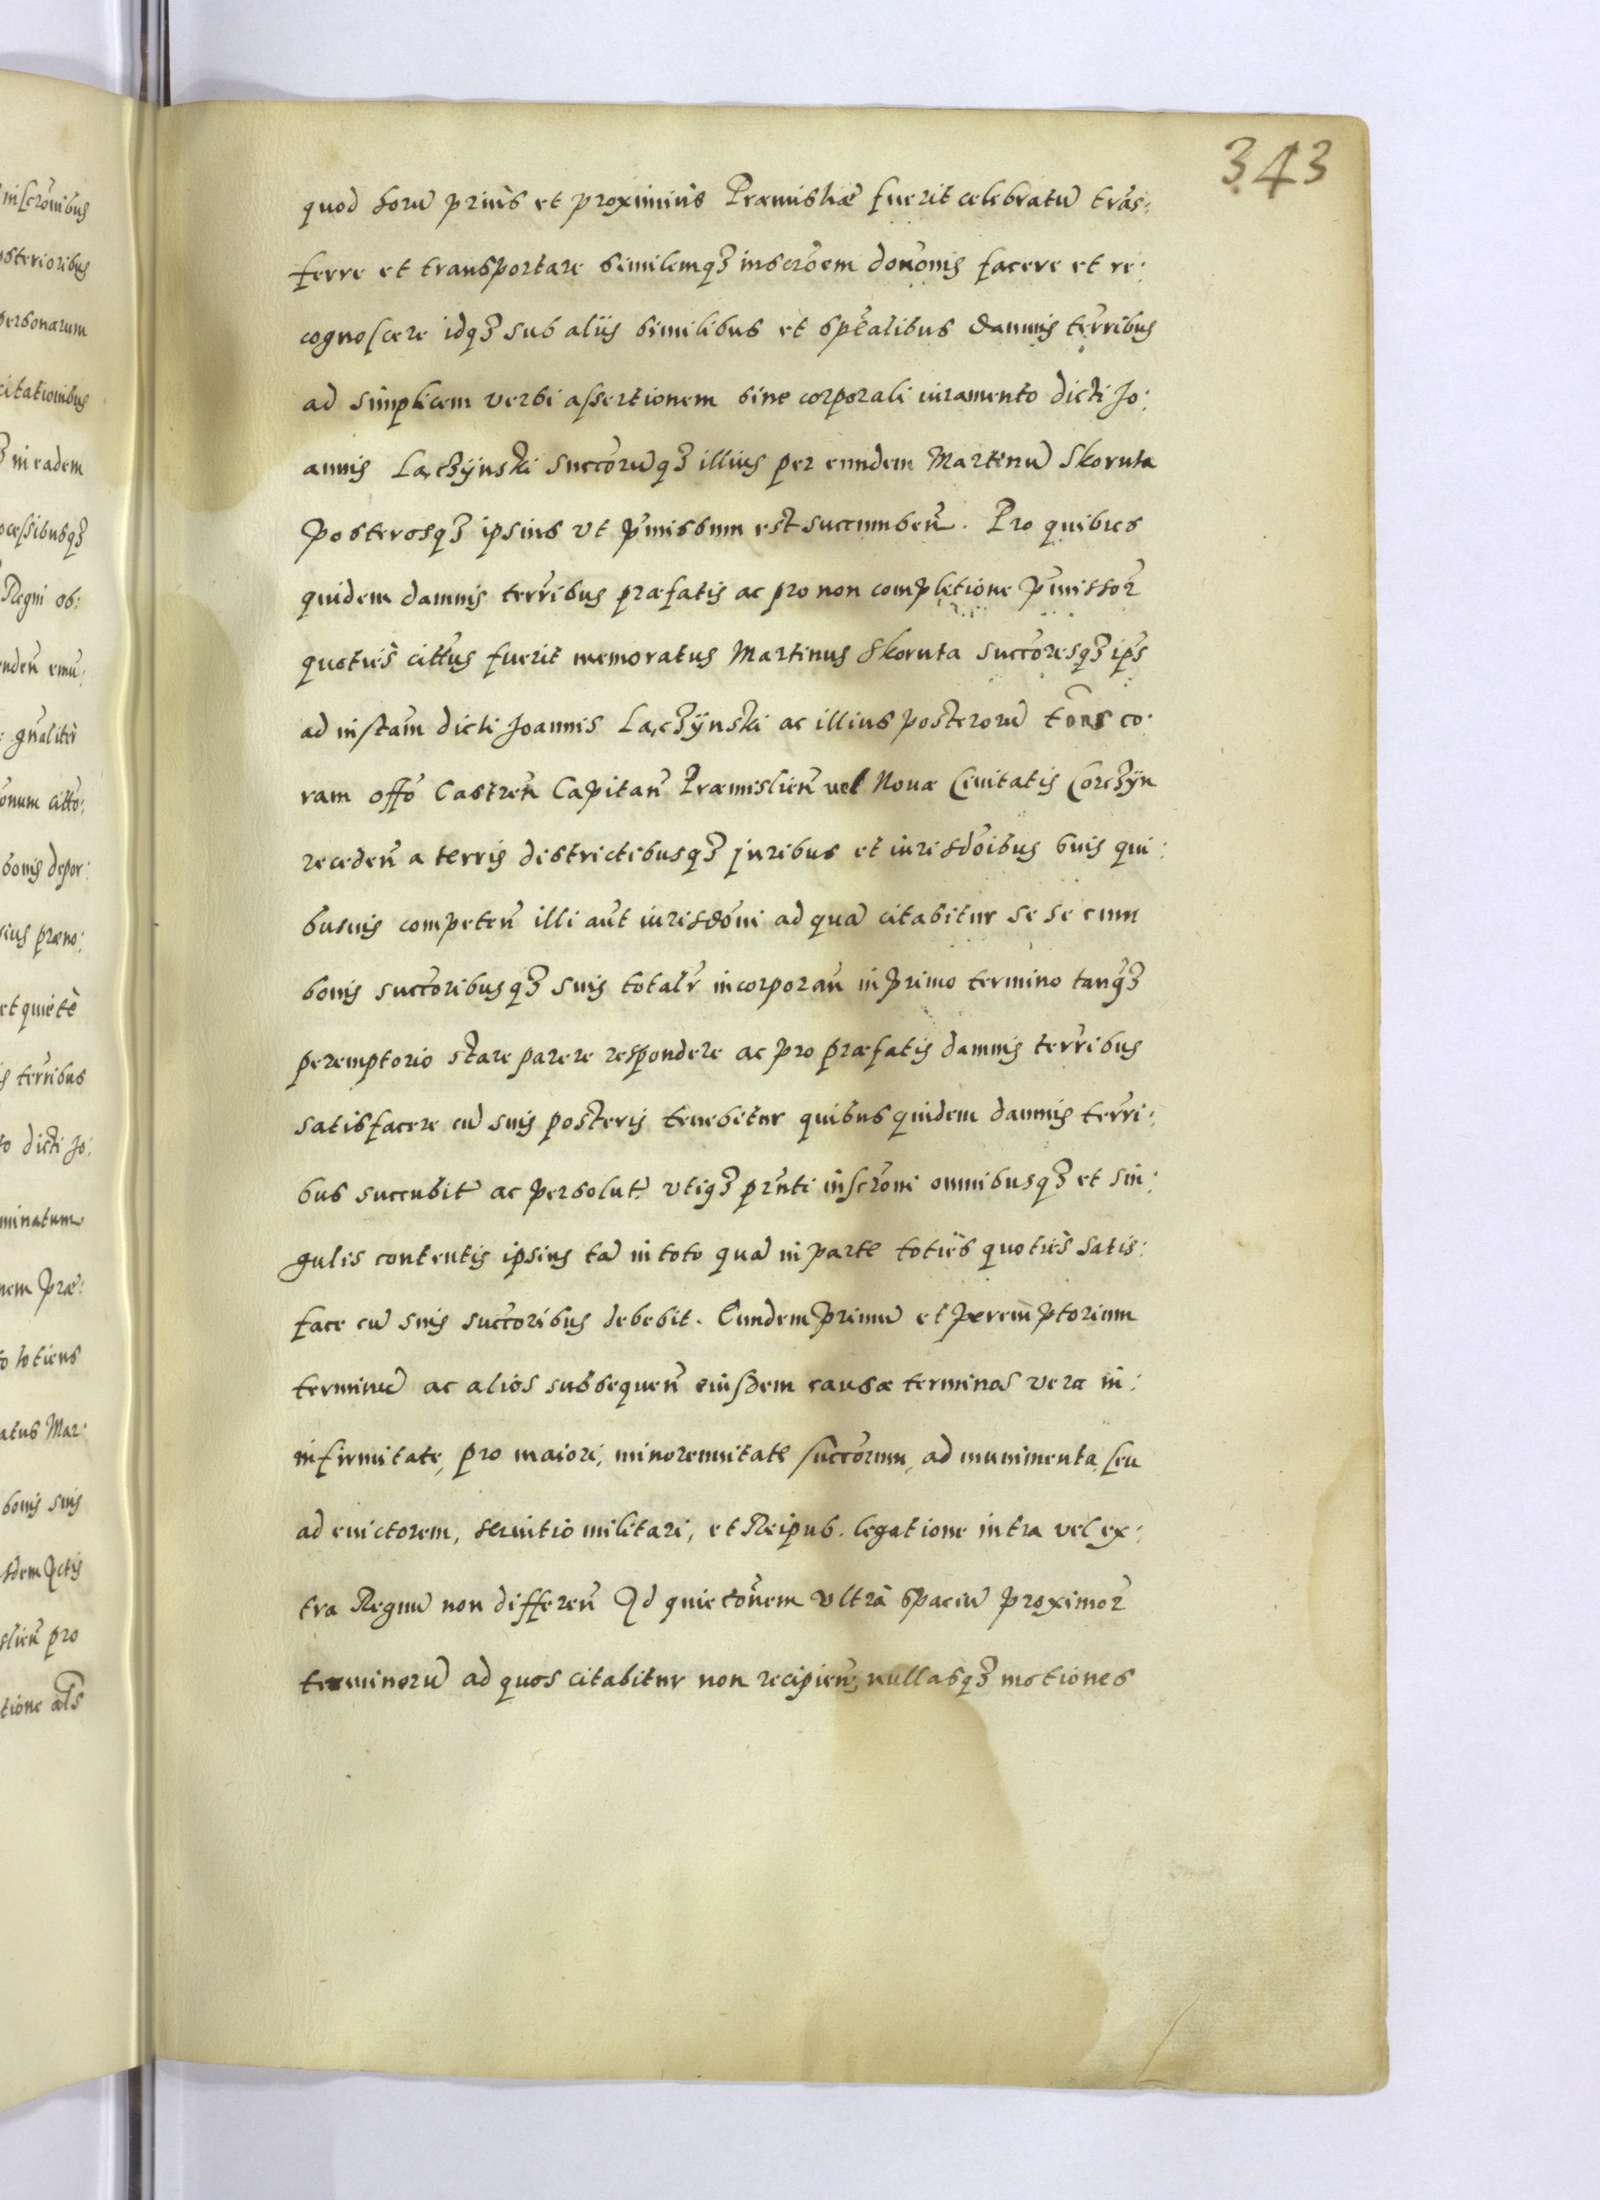 343
quod horũ prius et proximius Præmisliæ fuerit celebratũ trãs:
ferre et transportare similemqȝ inscrõem donõnis facere et re:
cognoscere idqȝ sub aliis similibus et spẽalibus damnis terrĩbus
ad simplicem verbi assertionem sine corporali iuramento dicti Jo:
annis Łączÿnski succõrũqȝ illius per eundem Martinũ Skoruta
posterosqȝ ipsius vt p̃missum est succumbeñ. Pro quibus
quidem damnis terrĩbus præfatis ac pro non completione p̃missoꝝ
quotiẽs citt̃us fuerit memoratus Martinus Skoruta succõresqȝ ip̃s
ad instañ dicti Joannis Łączÿnski ac illius posterorũ tõns co:
ram offõ Castreñ Capitañ Præmislieñ vel Nouæ Ciuitatis Corczÿn
recedeñ a terris districtibusqȝ juribus et iurisdõibus suis qui:
busuis competeñ illi aũt iurisdõni ad quã citabitur se se cum
bonis succõribusqȝ suis totalr̃ incorporañ in primo termino tanq̃ȝ
peremptorio stare parere respondere ac pro præfatis damnis terrĩbus
satisfacere cũ suis posteris tenebitur quibus quidem damnis terrĩ:
bus succubit̃ ac persolut̃ vtiqȝ prñti inscrõni omnibusqȝ et sin:
gulis contentis ipsius tã in toto quã in parte totiẽs quotiẽs satis:
face cũ suis succõribus debebit. Eundem primũ et peremptorium
terminũ ac alios subsequeñ eiusdem causæ terminos vera in:
infirmitate, pro maiori, minorennitate succõrum, ad munimenta, seu
ad euictorem, seruitio militari, et Reipub. legatione intra vel ex:
tra Regnũ non differeñ Ad quietõnem vltrà spaciũ proximoꝝ
terminorũ ad quos citabitur non recipieñ, nullasqȝ motiones